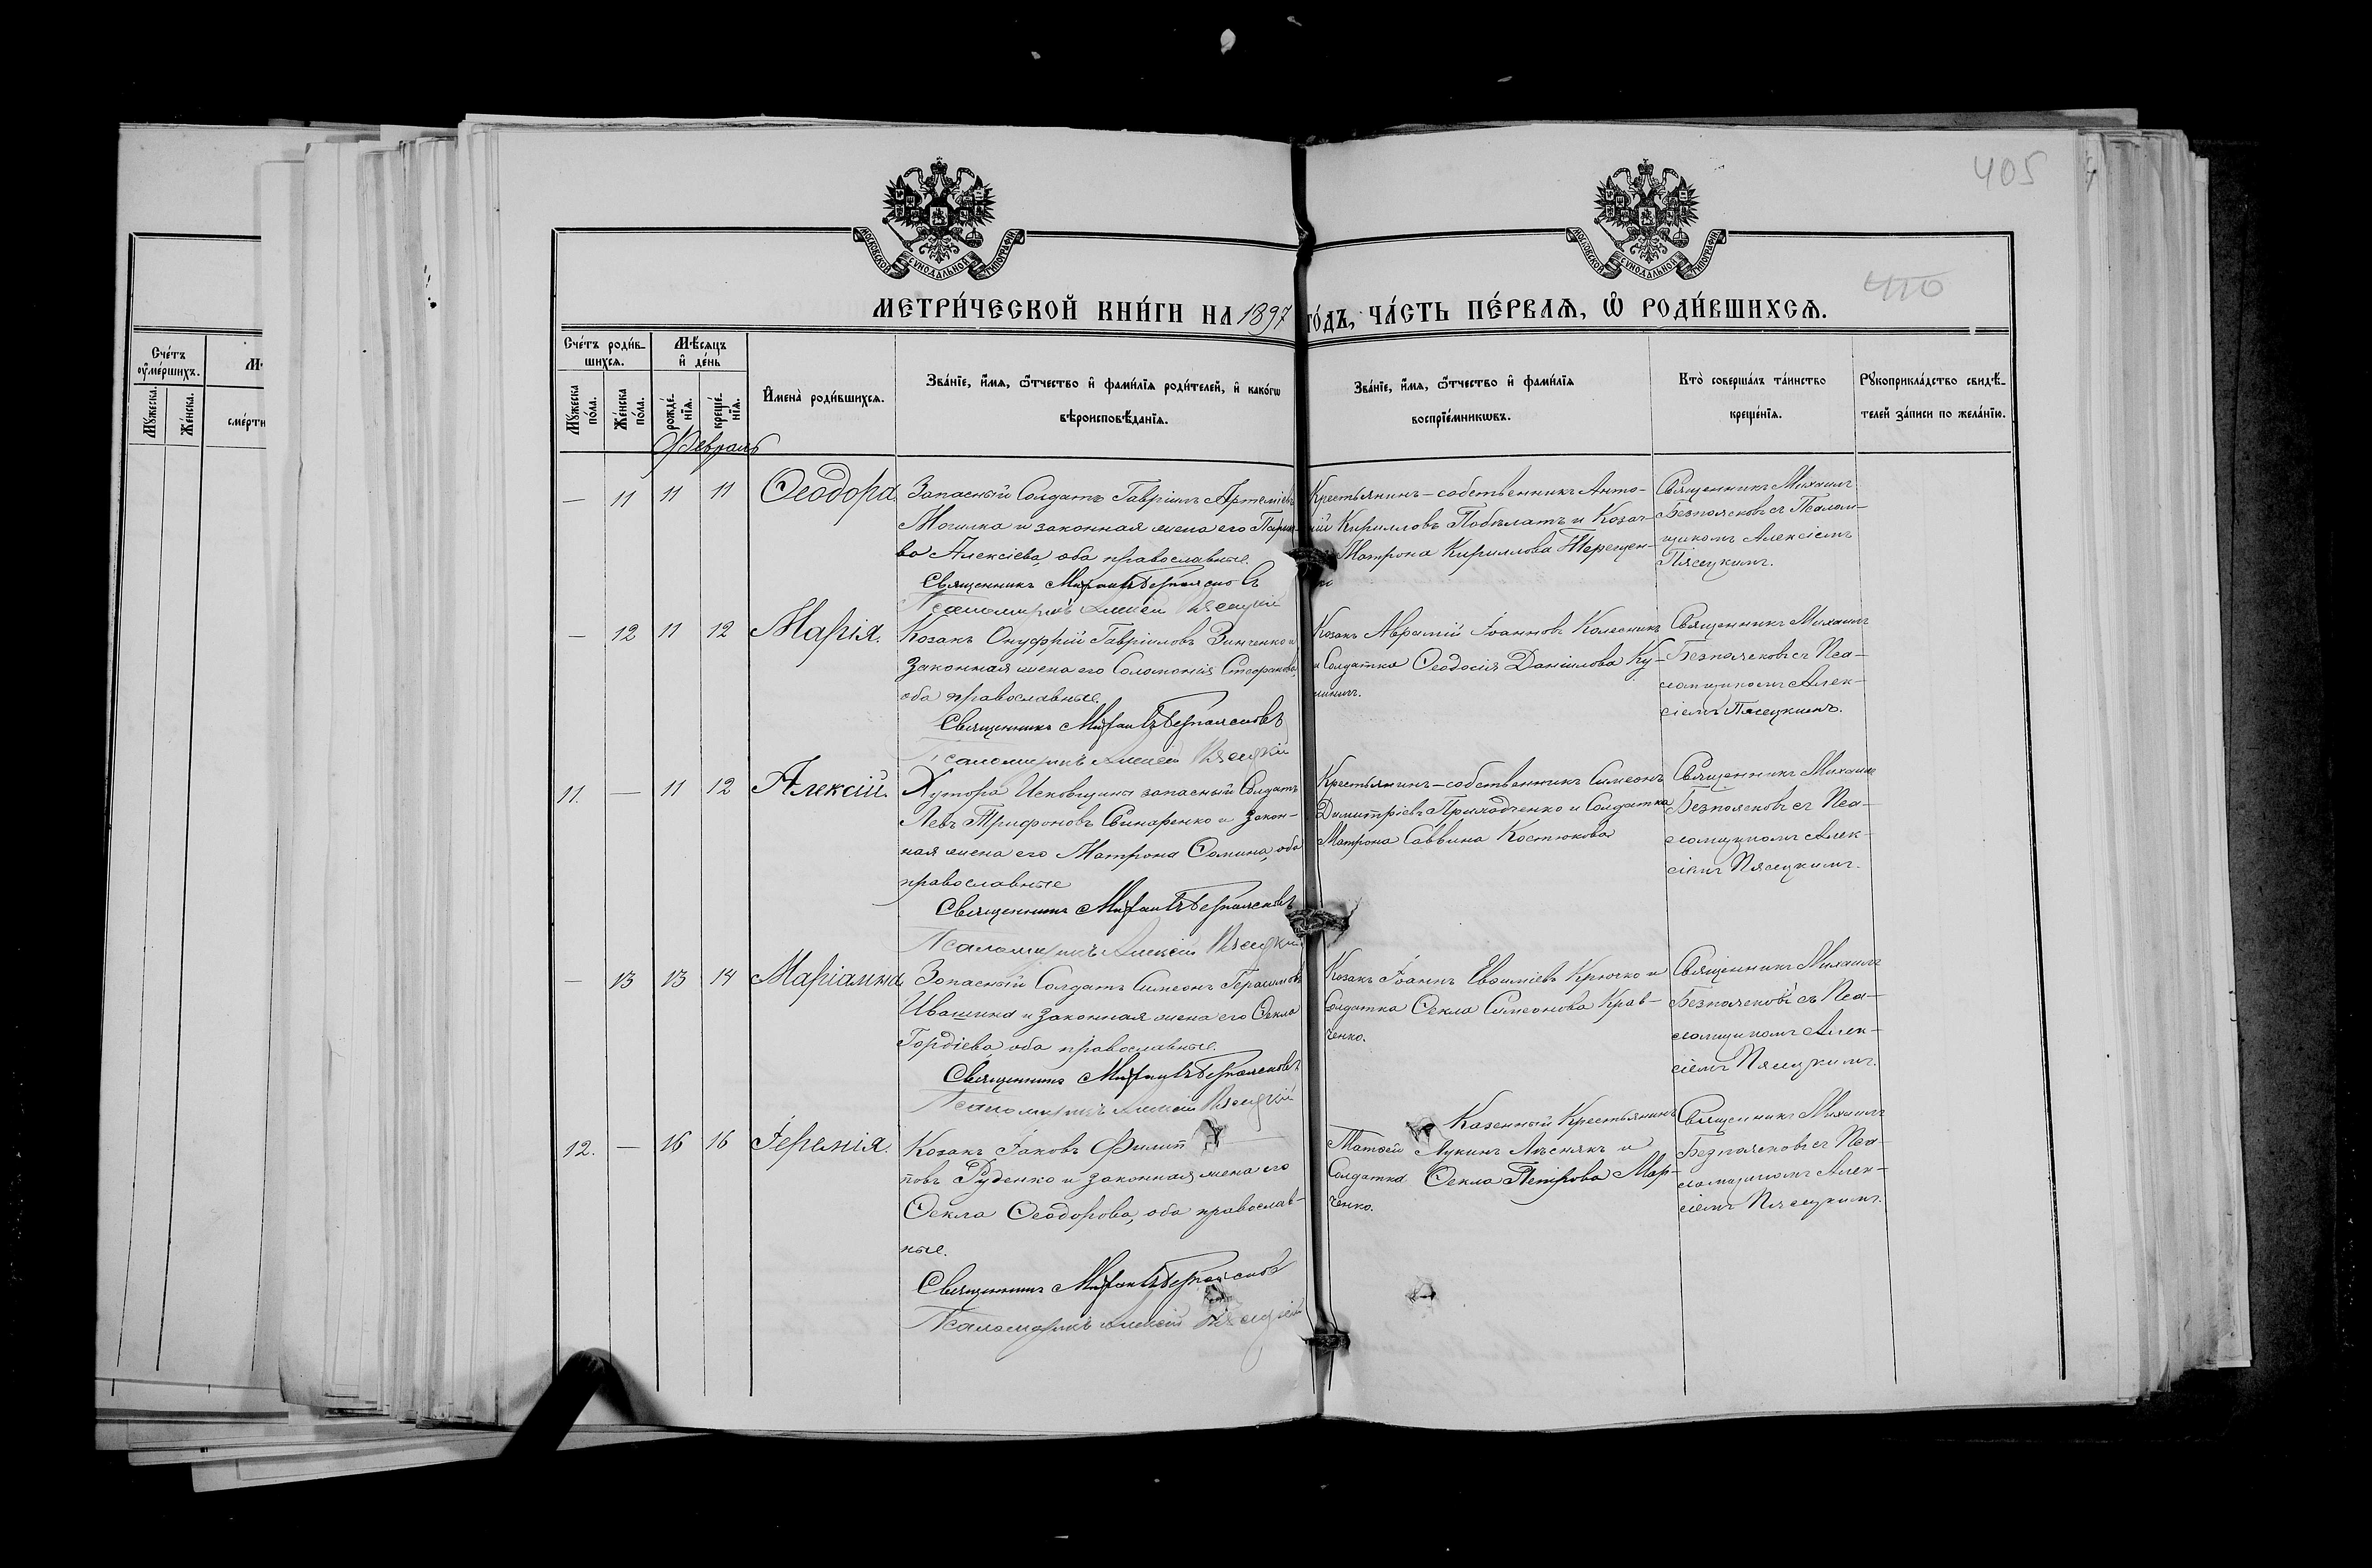 405
410
МОСКОВСКОЙ СѴНОДАЛЬНОЙ ТИПОГРАФІИ
МОСКОВСКОЙ СѴНОДАЛЬНОЙ ТИПОГРАФІИ
МЕТРИ́ЧЕСКОЙ КНИ́ГИ НА 1897 ГО́ДЪ, ЧА́СТЬ ПЕ́РВАѦ, Ѡ҆ РОДИ́ВШИХСѦ.
Сче́тъ
оу҆ме́ршихъ.
Мꙋжеска.
Же́нска.
сме́рти
Сче́тъ роди́в-
шихсѧ.
Мꙋжеска по́ла.
Же́нска по́ла.
Мѣ́сѧцъ
и҆ де́нь
рожде́-
нїѧ.
креще́-
нїѧ.
И҆мена̀ роди́вшихсѧ.
Зва́нїе, и҆́мѧ, ѻ҆́тчество и҆ фами́лїѧ роди́телей, и҆ како́гѡ
вѣроисповѣ́данїѧ.
Зва́нїе, и҆́мѧ, ѻ҆́тчество и҆ фами́лїѧ
воспрїе́мникѡвъ.
Кто̀ соверша́лъ та́инство
креще́нїѧ.
Рꙋкоприкла́дство свидѣ́-
телей за́писи по жела́нїю.
Февраль
— 11 11 11 Ѳеодора
Запасный Солдатъ Гавріилъ Артеміевъ
Могилка и законная жена его Параске-
ва Алексіева, оба православные.
Священникъ Михаилъ Безпоясковъ
Псаломщикъ Алексій Пясецкій
Крестьянинъ-собственникъ Анто-
ній Кирилловъ Побѣлатъ и Козач-
Матрона Кириллова Терещен-
ко
Священникъ Михаилъ
Безпоясковъ съ Псалом-
щикомъ Алексіемъ
Пясецкимъ.
— 12 11 12 Марія.
Козакъ Онуфрій Гавріиловъ Зинченко и
законная жена его Соломонія Стефанова,
оба православные.
Священникъ Михаилъ Безпоясковъ
Псаломщикъ Алексій Пясецкій
Козакъ Аврамій Іоанновъ Колесникъ
и Солдатка Ѳеодосія Даніилова Ку-
Священникъ Михаилъ
Безпоясковъ съ Пса-
ломщикомъ Алек-
сіемъ Пясецкимъ.
11. — 11 12 Алексій.
Хутора Исковщины запасный Солдатъ
Левъ Трифоновъ Свинаренко и закон-
ная жена его Матрона Ѳомина, оба
православные
Священникъ Михаилъ Безпоясковъ
Псаломщикъ Алексій Пясецкій
Крестьянинъ-собственникъ Симеонъ
Димитріевъ Приходченко и Солдатка
Матрона Саввина Костюкова
Священникъ Михаилъ
Безпоясковъ съ Пса-
ломщикомъ Алек-
сіемъ Пясецкимъ.
— 13 13 14 Маріамна
Запасный Солдатъ Симеонъ Герасимовъ
Ивашина и законная жена его Ѳекла
Гордіева, оба православные.
Священникъ Михаилъ Безпоясковъ
Псаломщикъ Алексій Пясецкій
Козакъ Іоаннъ Евѳиміевъ Крючко и
Солдатка Ѳекла Симеонова Крав-
ченко.
Священникъ Михаилъ
Безпоясковъ съ Пса-
ломщикомъ Алек-
сіемъ Пясецкимъ.
12. — 16 16 Іеремія.
Козакъ Іаковъ Филип-
повъ Руденко и законная жена его
Ѳекла Ѳеодорова, оба православ-
ные.
Священникъ Михаилъ Безпоясковъ
Псаломщикъ Алексій Пясецкій
Казенный Крестьянинъ
Матѳей Лукинъ Лѣснякъ и
Солдатка Ѳекла Петрова Мар-
ченко.
Священникъ Михаилъ
Безпоясковъ съ Пса-
ломщикомъ Алек-
сіемъ Пясецкимъ.